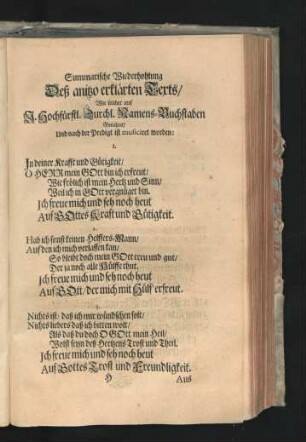 Summarische Wiederhohlung
Deß anitzo erklärten Texts/
Wie solcher auf
J. Hochfürstl. Durchl. Namens-Buchstaben
Gerichtet/
Und nach der Predigt ist musiciret worden:
1.
In deiner Krafft und Gütigkeit/
O HERR mein GOtt bin ich erfreut/
Wie frölich ist mein Hertz und Sinn/
Weil ich in GOtt vergnüget bin.
Ich freue mich und seh noch heut
Auf GOttes Kraft und Gütigkeit.
2.
Hab ich sonst keinen Helffers-Mann/
Auf den ich mich verlassen kan/
So bleibt doch mein GOtt treu und gut/
Der ja noch alle Hülffe thut.
Ich freue mich und seh noch heut
Auf GOtt/ der mich mit Hülf erfreut.
3.
Nichts ist/ daß ich mir wündschen solt/
Nichts liebers daß ich bitten wolt/
Als daß du doch O GOtt mein Heil/
Wollst seyn deß Hertzens Trost und Theil.
Ich freue mich und seh noch heut
Auf Gottes Trost und Freundligkeit.
H Aus